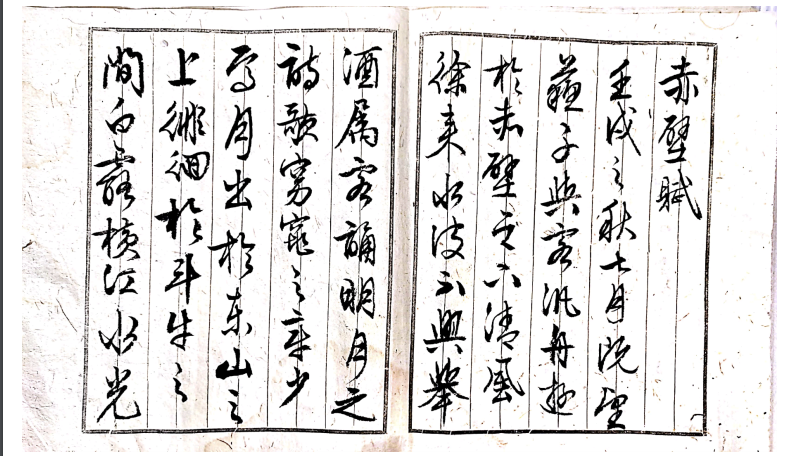 赤壁賦
壬戌之秋七月既望
蘇子與客汎舟遊
於赤壁之下清風
徐来水波不興舉
酒属客誦明月之
詩歌窈窕之章少
焉月出於东山之
上徘徊於斗牛之
間白露横江水光